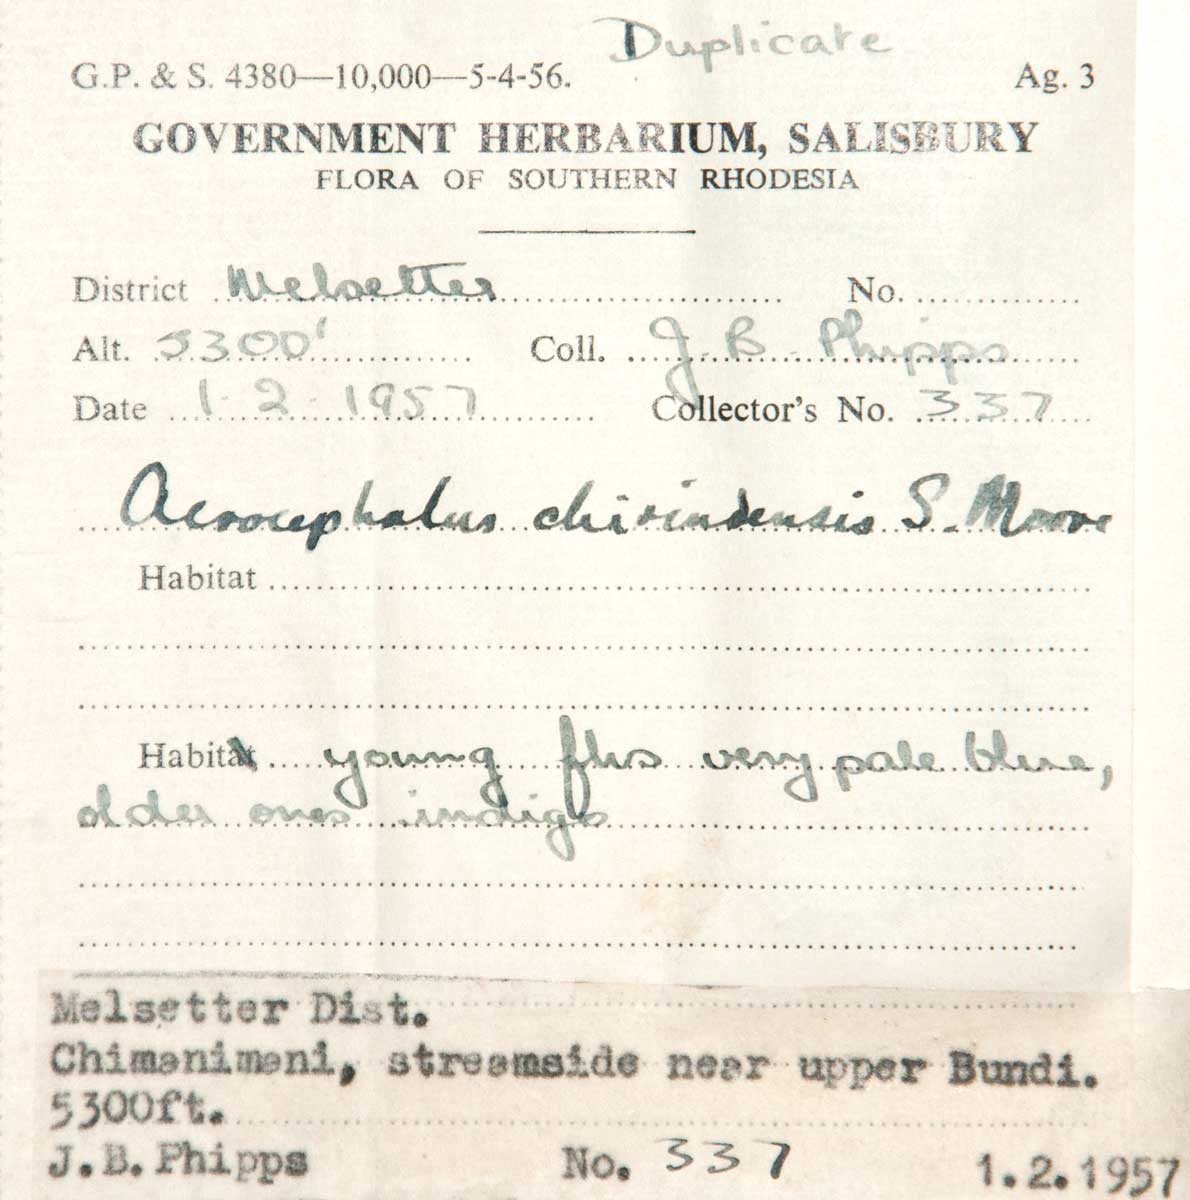 Duplicate
G.P. & S. 4380—10,000—5-4-56. Ag. 3
GOVERNMENT HERBARIUM, SALISBURY
FLORA OF SOUTHERN RHODESIA
District Melsetter No.
Alt. 5300' Coll. J. B. Phipps
Date 1.2.1957 Collector's No. 337
Acrocephalus chirindensis S. Moore
Habitat
Habitat young flrs very pale blue,
older ones indigo
Melsetter Dist.
Chimanimani, streamside near upper Bundi.
5300ft.
J.B. Phipps No. 337 1.2.1957